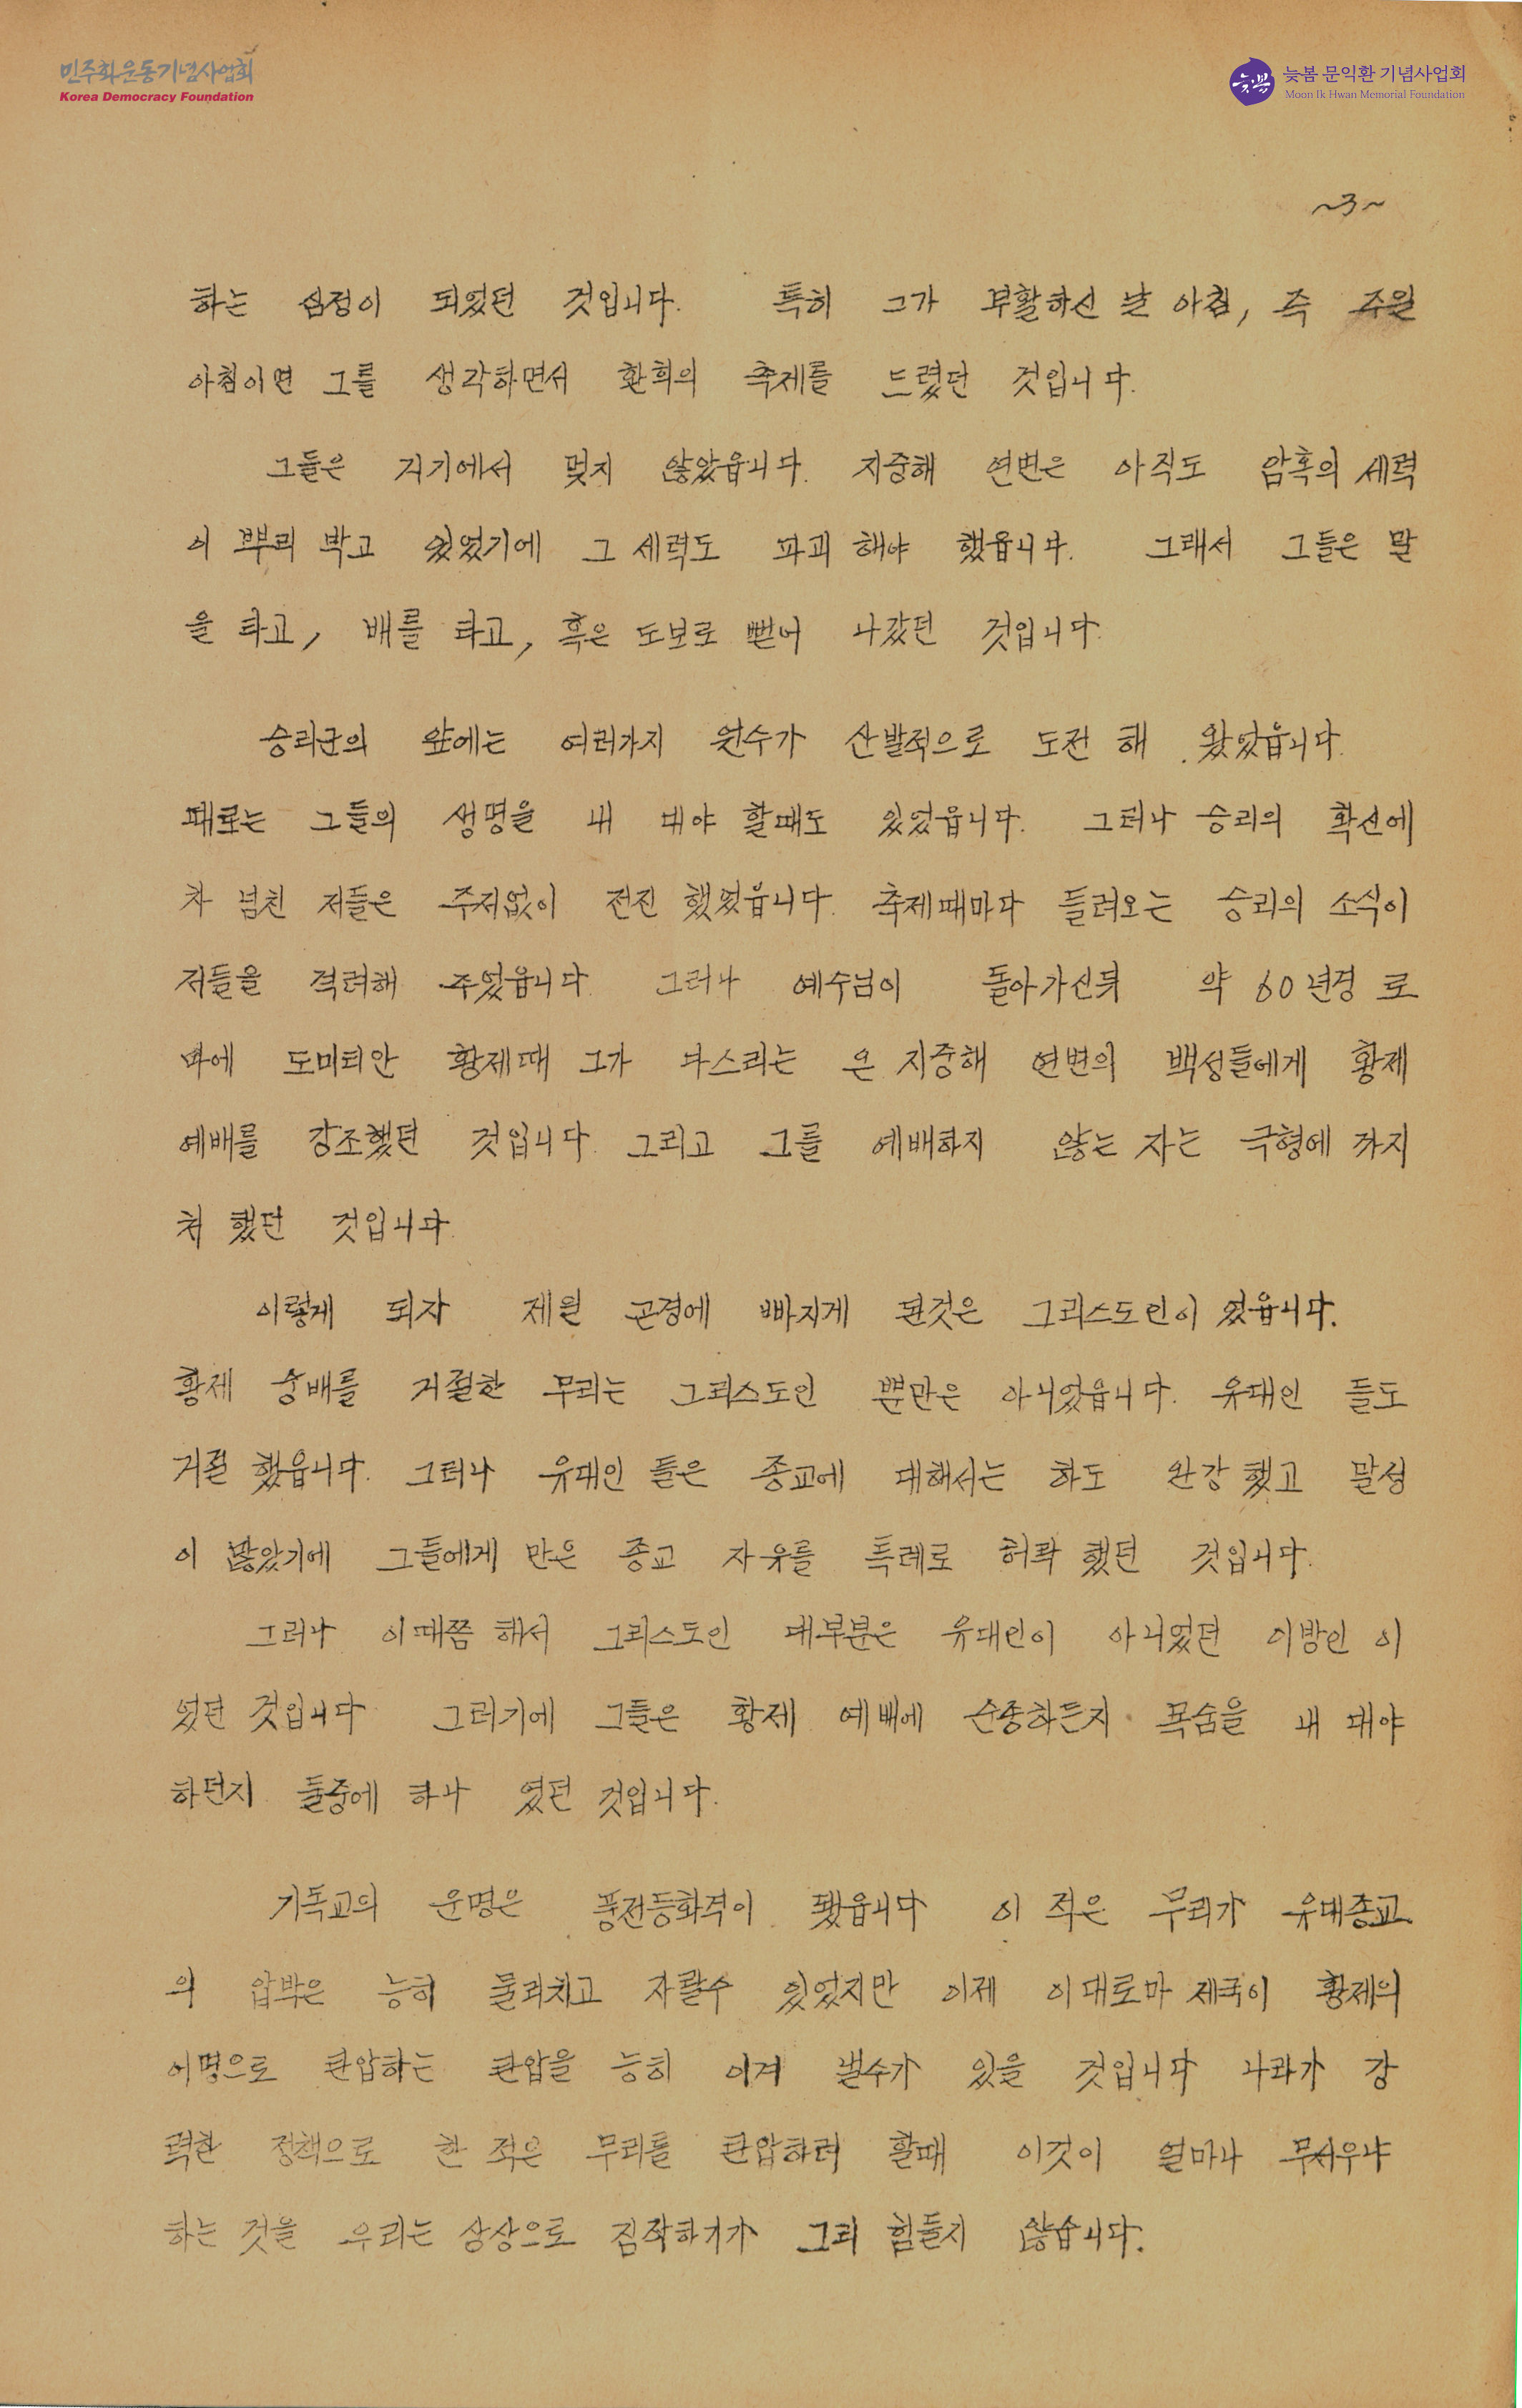 민주화운동기념사업회
Korea Democracy Foundation
늦봄
늦봄 문익환 기념사업회
Moon Ik Hwan Memorial Foundation
~3~
하는 심정이 되었던 것입니다. 특히 그가 부활하신 날 아침, 즉 주일
아침이면 그를 생각하면서 환희의 축제를 드렸던 것입니다.
그들은 거기에서 멎지 않았읍니다. 지중해 연변은 아직도 암흑의 세력
이 뿌리 박고 있었기에 그 세력도 파괴 해야 했읍니다. 그래서 그들은 말
을 타고, 배를 타고, 혹은 도보로 뻗어 나갔던 것입니다.
승리군의 앞에는 여러가지 원수가 산발적으로 도전 해 왔었읍니다.
때로는 그들의 생명을 내 대야 할때도 있었읍니다. 그러나 승리의 확신에
차 넘친 저들은 주저없이 전진 했었읍니다. 축제때마다 들려오는 승리의 소식이
저들을 격려해 주었읍니다. 그러나 예수님이 돌아가신뒤 약 60년경 로
마에 도미티안 황제때 그가 다스리는 온 지중해 연변의 백성들에게 황제
예배를 강조했던 것입니다. 그리고 그를 예배하지 않는 자는 극형에 까지
처 했던 것입니다.
이렇게 되자 제일 곤경에 빠지게 된것은 그리스도인이 었읍니다.
황제 숭배를 거절한 무리는 그리스도인 뿐만은 아니었읍니다. 유대인 들도
거절 했읍니다. 그러나 유대인 들은 종교에 대해서는 하도 완강 했고 말성
이 많았기에 그들에게 만은 종교 자유를 특례로 허락 했던 것입니다.
그러나 이때쯤 해서 그리스도인 대부분은 유대인이 아니었던 이방인 이
었던 것입니다 그러기에 그들은 황제 예배에 순종하든지 목숨을 내 대야
하던지 둘중에 하나 였던 것입니다.
기독교의 운명은 풍전등화격이 됐읍니다 이 적은 무리가 유대종교
의 압박은 능히 물리치고 자랄수 있었지만 이제 이 대로마 제국이 황제의
어명으로 탄압하는 탄압을 능히 이겨 낼수가 있을 것입니다 나라가 강
력한 정책으로 한 적은 무리를 탄압하려 할때 이것이 얼마나 무서우냐
하는 것을 우리는 상상으로 짐작하기가 그리 힘들지 않습니다.